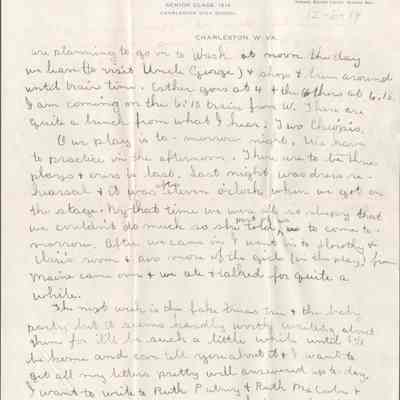 SENIOR CLASS, 1914
CHARLESTON HIGH SCHOOL
CHARLESTON, W. VA.
are planning to go on to Wash at noon the day
we leave (to visit Uncle George) & shop & run around
until train time. Esther goes at 4 & the others at 6.15.
I am coming on the 6:15 train from W. There are
quite a bunch from what I hear. Two Chiopis.
Our play is to-morrow night. We have
to practice in the afternoon. There are to be three
plays & ours is last. Last night was dress re-
hearsal & it was after eleven o'clock when we got on
the stage. By that time we were all so sleepy that
we couldn't do much so she told us to come to-
morrow. After we came in I went in to Dorothy &
Chris's room & two more of the girls (in the play) from
Main came over & we ate & talked for quite a
while.
The next week is the fake Xmas tree & the
party but it seems hardly worth writing about
them for it'll be such a little while until I'll
be home and can tell you about it & I want to
get all my letters pretty well answered up to-day.
I want to write to Ruth Putney & Ruth McCabe &